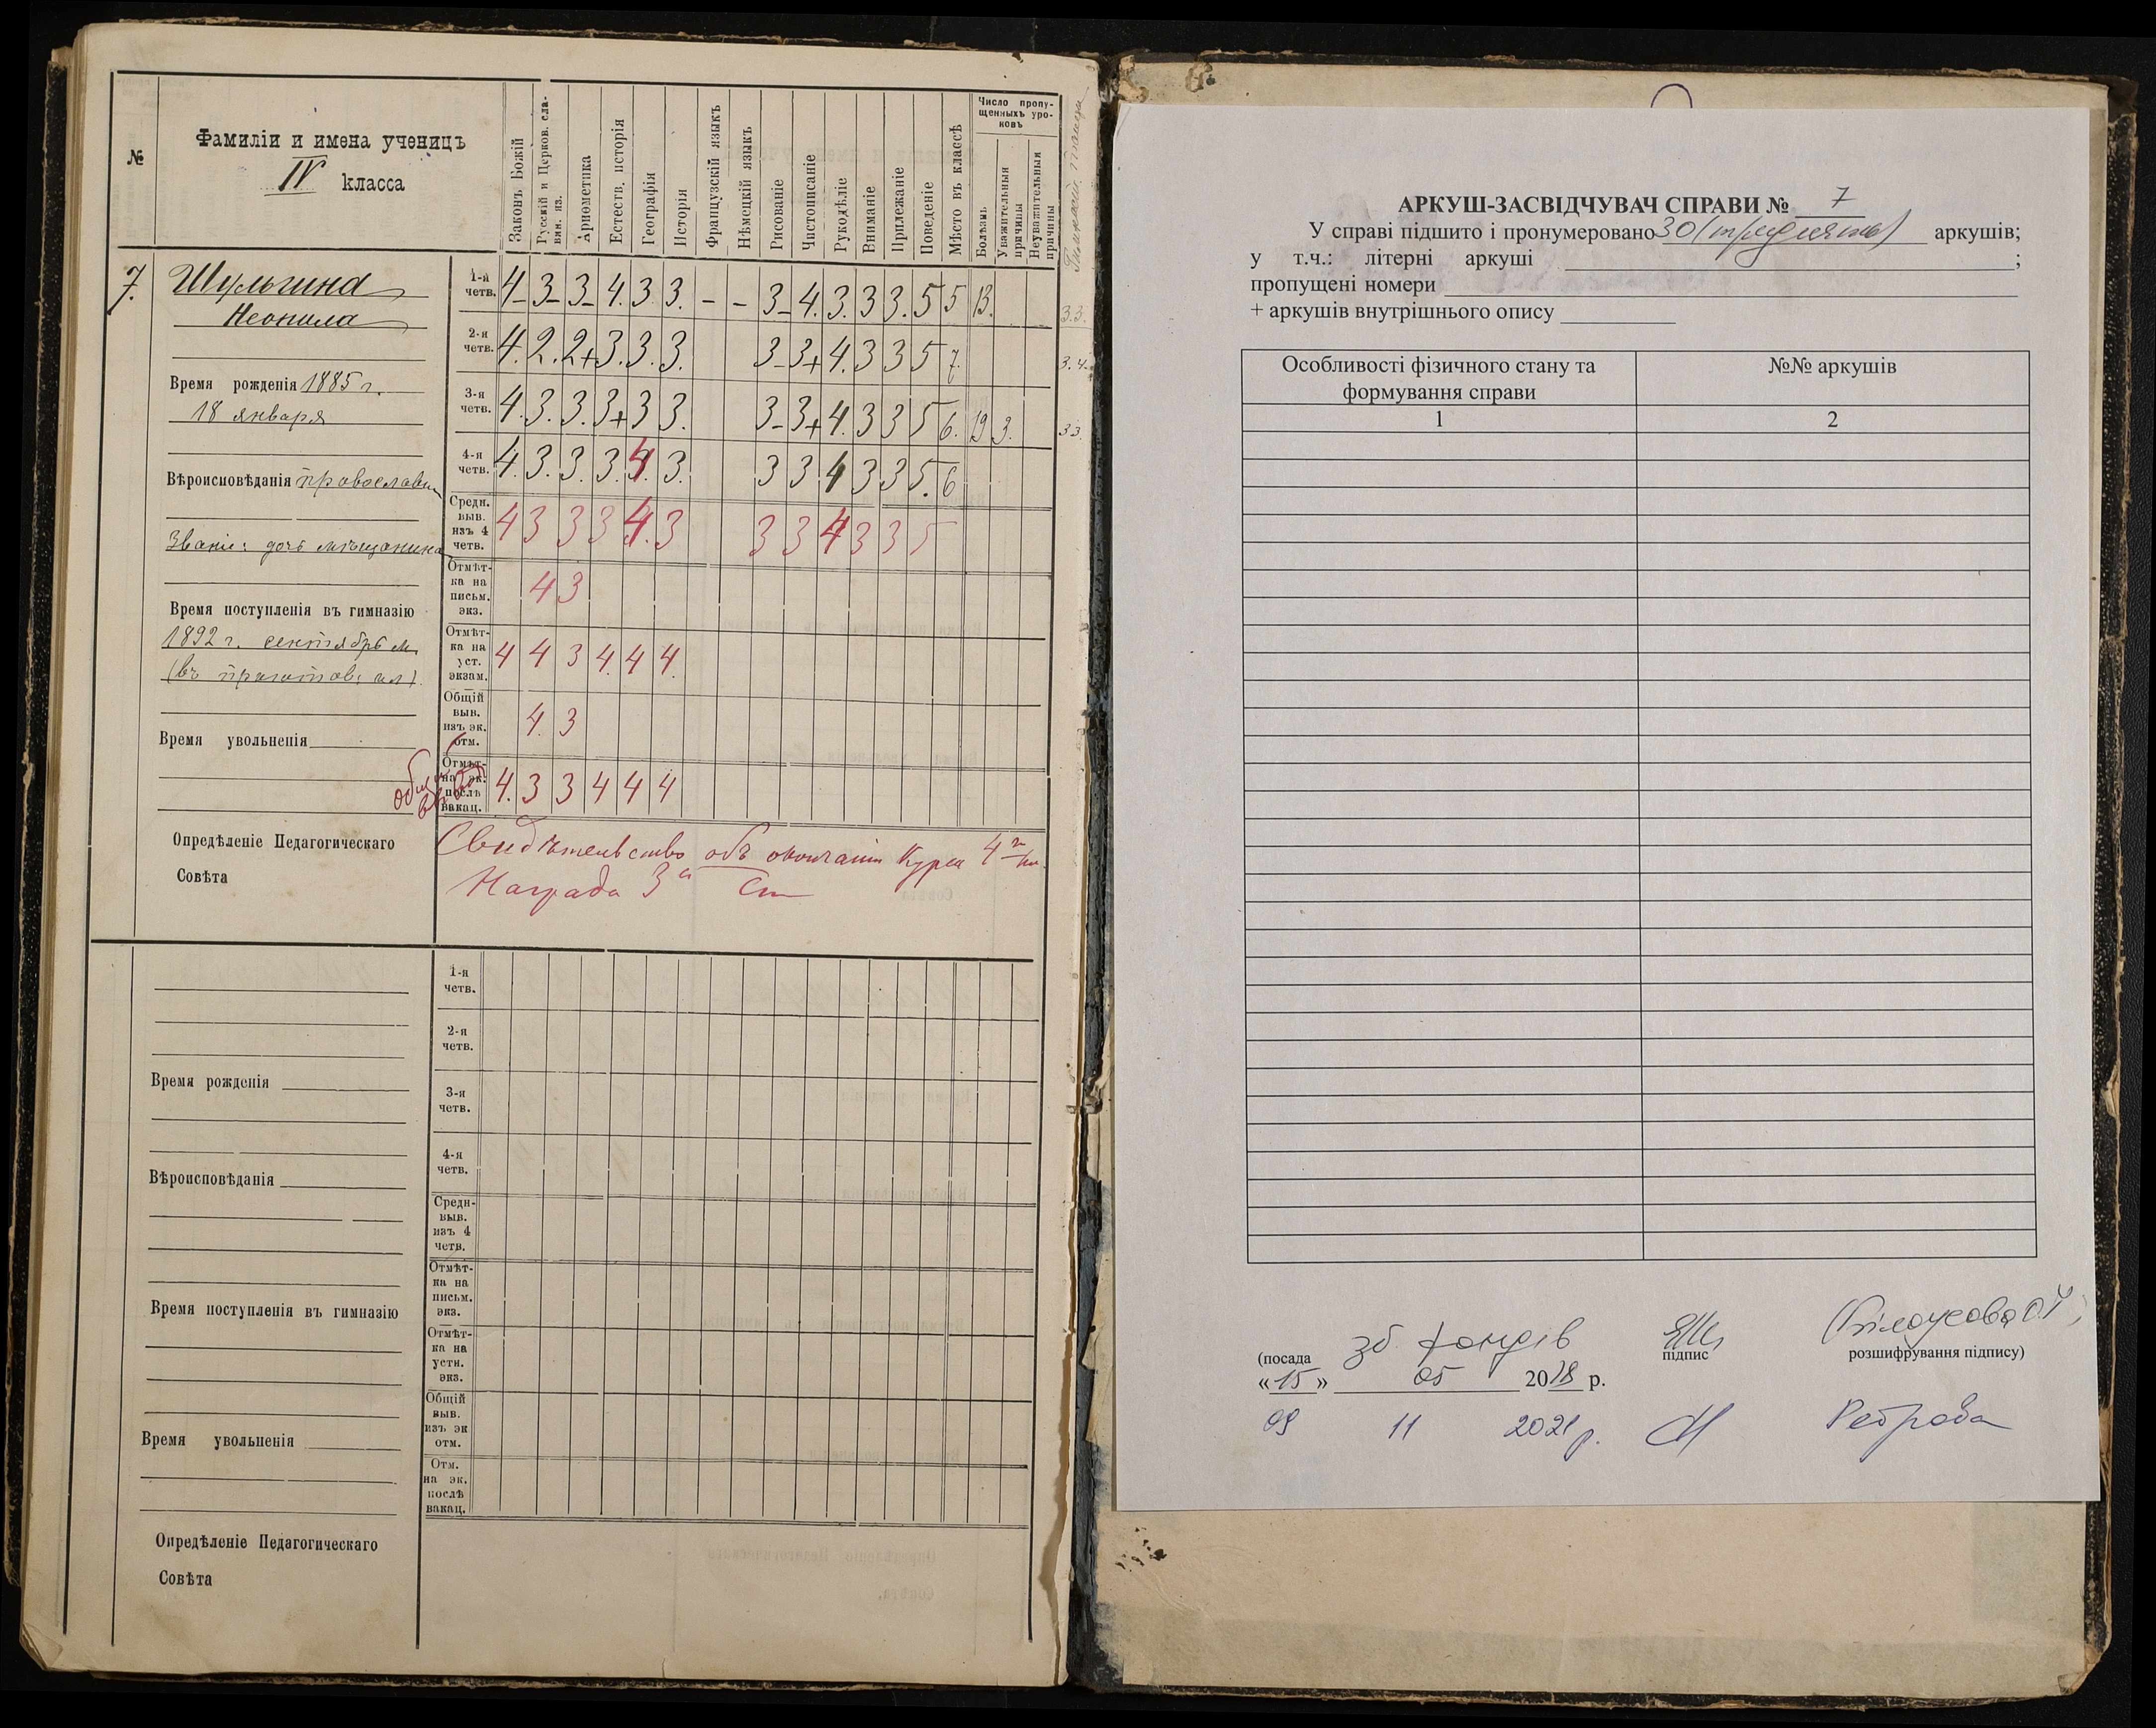 №
Фамиліи и имена ученицъ
IV класса
Законъ Божій
Русскій и Церков. сла-
вян. яз.
Ариөметика
Естеств. исторія
Географія
Исторія
Французскій языкъ
Нѣмецкій языкъ
Рисованіе
Чистописаніе
Рукодѣліе
Вниманіе
Прилежаніе
Поведеніе
Мѣсто въ классѣ
Число пропу-
щенныхъ уро-
ковъ
Болѣзнь
Уважительныя
причины
Неуважительныя
причины
7. Шульгина
Неонила
Время рожденія 1885 г.
18 января
Вѣроисповѣданія православн
Званіе: дочь мѣщанина
Время поступленія въ гимназію
1892 г. сентябрь м.
(въ приготов: кл).
Время увольненія
1-я четв. 4- 3- 3- 4. 3 3. - - 3- 4. 3. 3 3. 5 5 13. 3.3.
2-я четв. 4. 2. 2+ 3. 3. 3. 3- 3+ 4. 3 3 5 7. 3.4.
3-я четв. 4. 3. 3. 3+ 3 3. 3- 3+ 4. 3 3 5 6. 19 3. 3 3.
4-я четв. 4. 3. 3. 3. 4. 3. 3 3 4 3 3 5. 6
Средн. выв. изъ 4 четв. 4 3 3 3 4. 3 3 3 4 3 3 5
Отмѣт-ка на письм. экз. 4 3
Отмѣт-ка на уст. экзам. 4 4 3 4. 4 4.
Общій выв. изъ эк. отм. 4. 3
Отмѣт. на эк. послѣ вакац. 4. 3 3 4 4 4
Опредѣленіе Педагогическаго
Совѣта
Свидѣтельство объ окончаніи курса 4го кл.
Награда 3я Ст
1-я
четв.
2-я
четв.
Время рожденія
3-я
четв.
4-я
четв.
Вѣроисповѣданія
Средн-
выв.
изъ 4
четв.
Отмѣт-
ка на
письм.
экз.
Время поступленія въ гимназію
Отмѣт-
ка на
устн.
экз.
Общій
выв.
изъ эк
отм.
Время увольненія
Отм.
на эк.
послѣ
вакац.
Опредѣленіе Педагогическаго
Совѣта
АРКУШ-ЗАСВІДЧУВАЧ СПРАВИ № 7
У справі підшито і пронумеровано 30 (тридцять) аркушів;
у т.ч.: літерні аркуші ;
пропущені номери
+ аркушів внутрішнього опису
Особливості фізичного стану та
формування справи
№№ аркушів
1 2
зб. фондів (Білоусова О.І.)
(посада підпис розшифрування підпису)
«15» 05 2018 р.
09 11 2021 р. Реброва